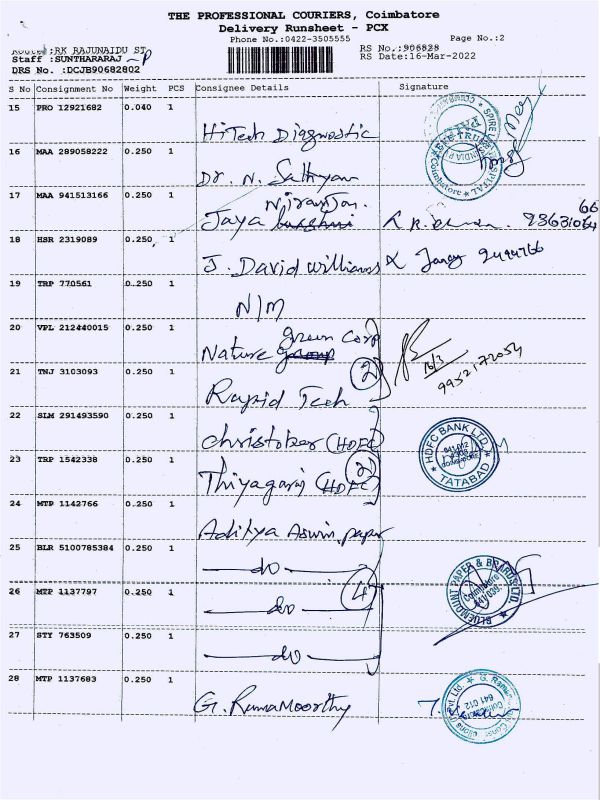 THE PROFESSIONAL COURIERS, Coimbatore
Delivery Runsheet - PCX
Phone No.:0422-3505555 Page No.:2
Route :RK RAJUNAIDU ST RS No.:906828
Staff :SUNTHARARAJ RS Date:16-Mar-2022
DRS No. :DCJB90682802
S No Consignment No Weight PCS Consignee Details Signature
15 PRO 12921682 0.040 1 HiTech Diagnostic
16 MAA 289058222 0.250 1 Dr. N. Sathyan
Niranjan
17 MAA 941513166 0.250 1 Jaya
18 HSR 2319089 0.250 1 J. David williams
19 TRP 770561 0.250 1 N/M
green Corp
20 VPL 212440015 0.250 1 Nature 16/3
21 TNJ 3103093 0.250 1 Rapid Tech (2) 9952172054
22 SLM 291493590 0.250 1 christober (HDFC)
23 TRP 1542338 0.250 1 Thiyagaraj (HDFC) (2) HDFC BANK LTD. TATABAD
24 MTP 1142766 0.250 1 Aditya Aswin paper
25 BLR 5100785384 0.250 1 do
26 MTP 1137797 0.250 1 do (4) BLUEMOUNT PAPER & BOARDS LTD. Coimbatore
27 STY 763509 0.250 1 do
28 MTP 1137683 0.250 1 G. RamaMoorthy 641 012